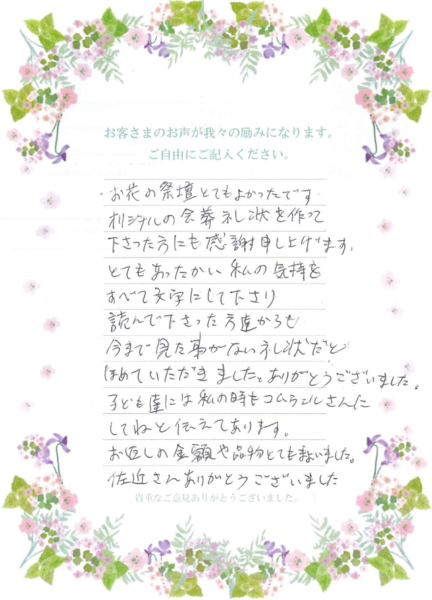 お客さまのお声が我々の励みになります。
ご自由にご記入ください。
お花の祭壇とてもよかったです
オリジナルの会葬礼状を作って
下さった方にも感謝申し上げます。
とてもあったかい私の気持を
すべて文字にして下さり
読んで下さった方達からも
今まで見た事がない礼状だと
ほめていただきました。ありがとうございました。
子ども達には私の時もコムランルさんに
してねと伝えてあります。
お返しの金額や品物とても良いました。
佐近さんありがとうございました
貴重なご意見ありがとうございました。